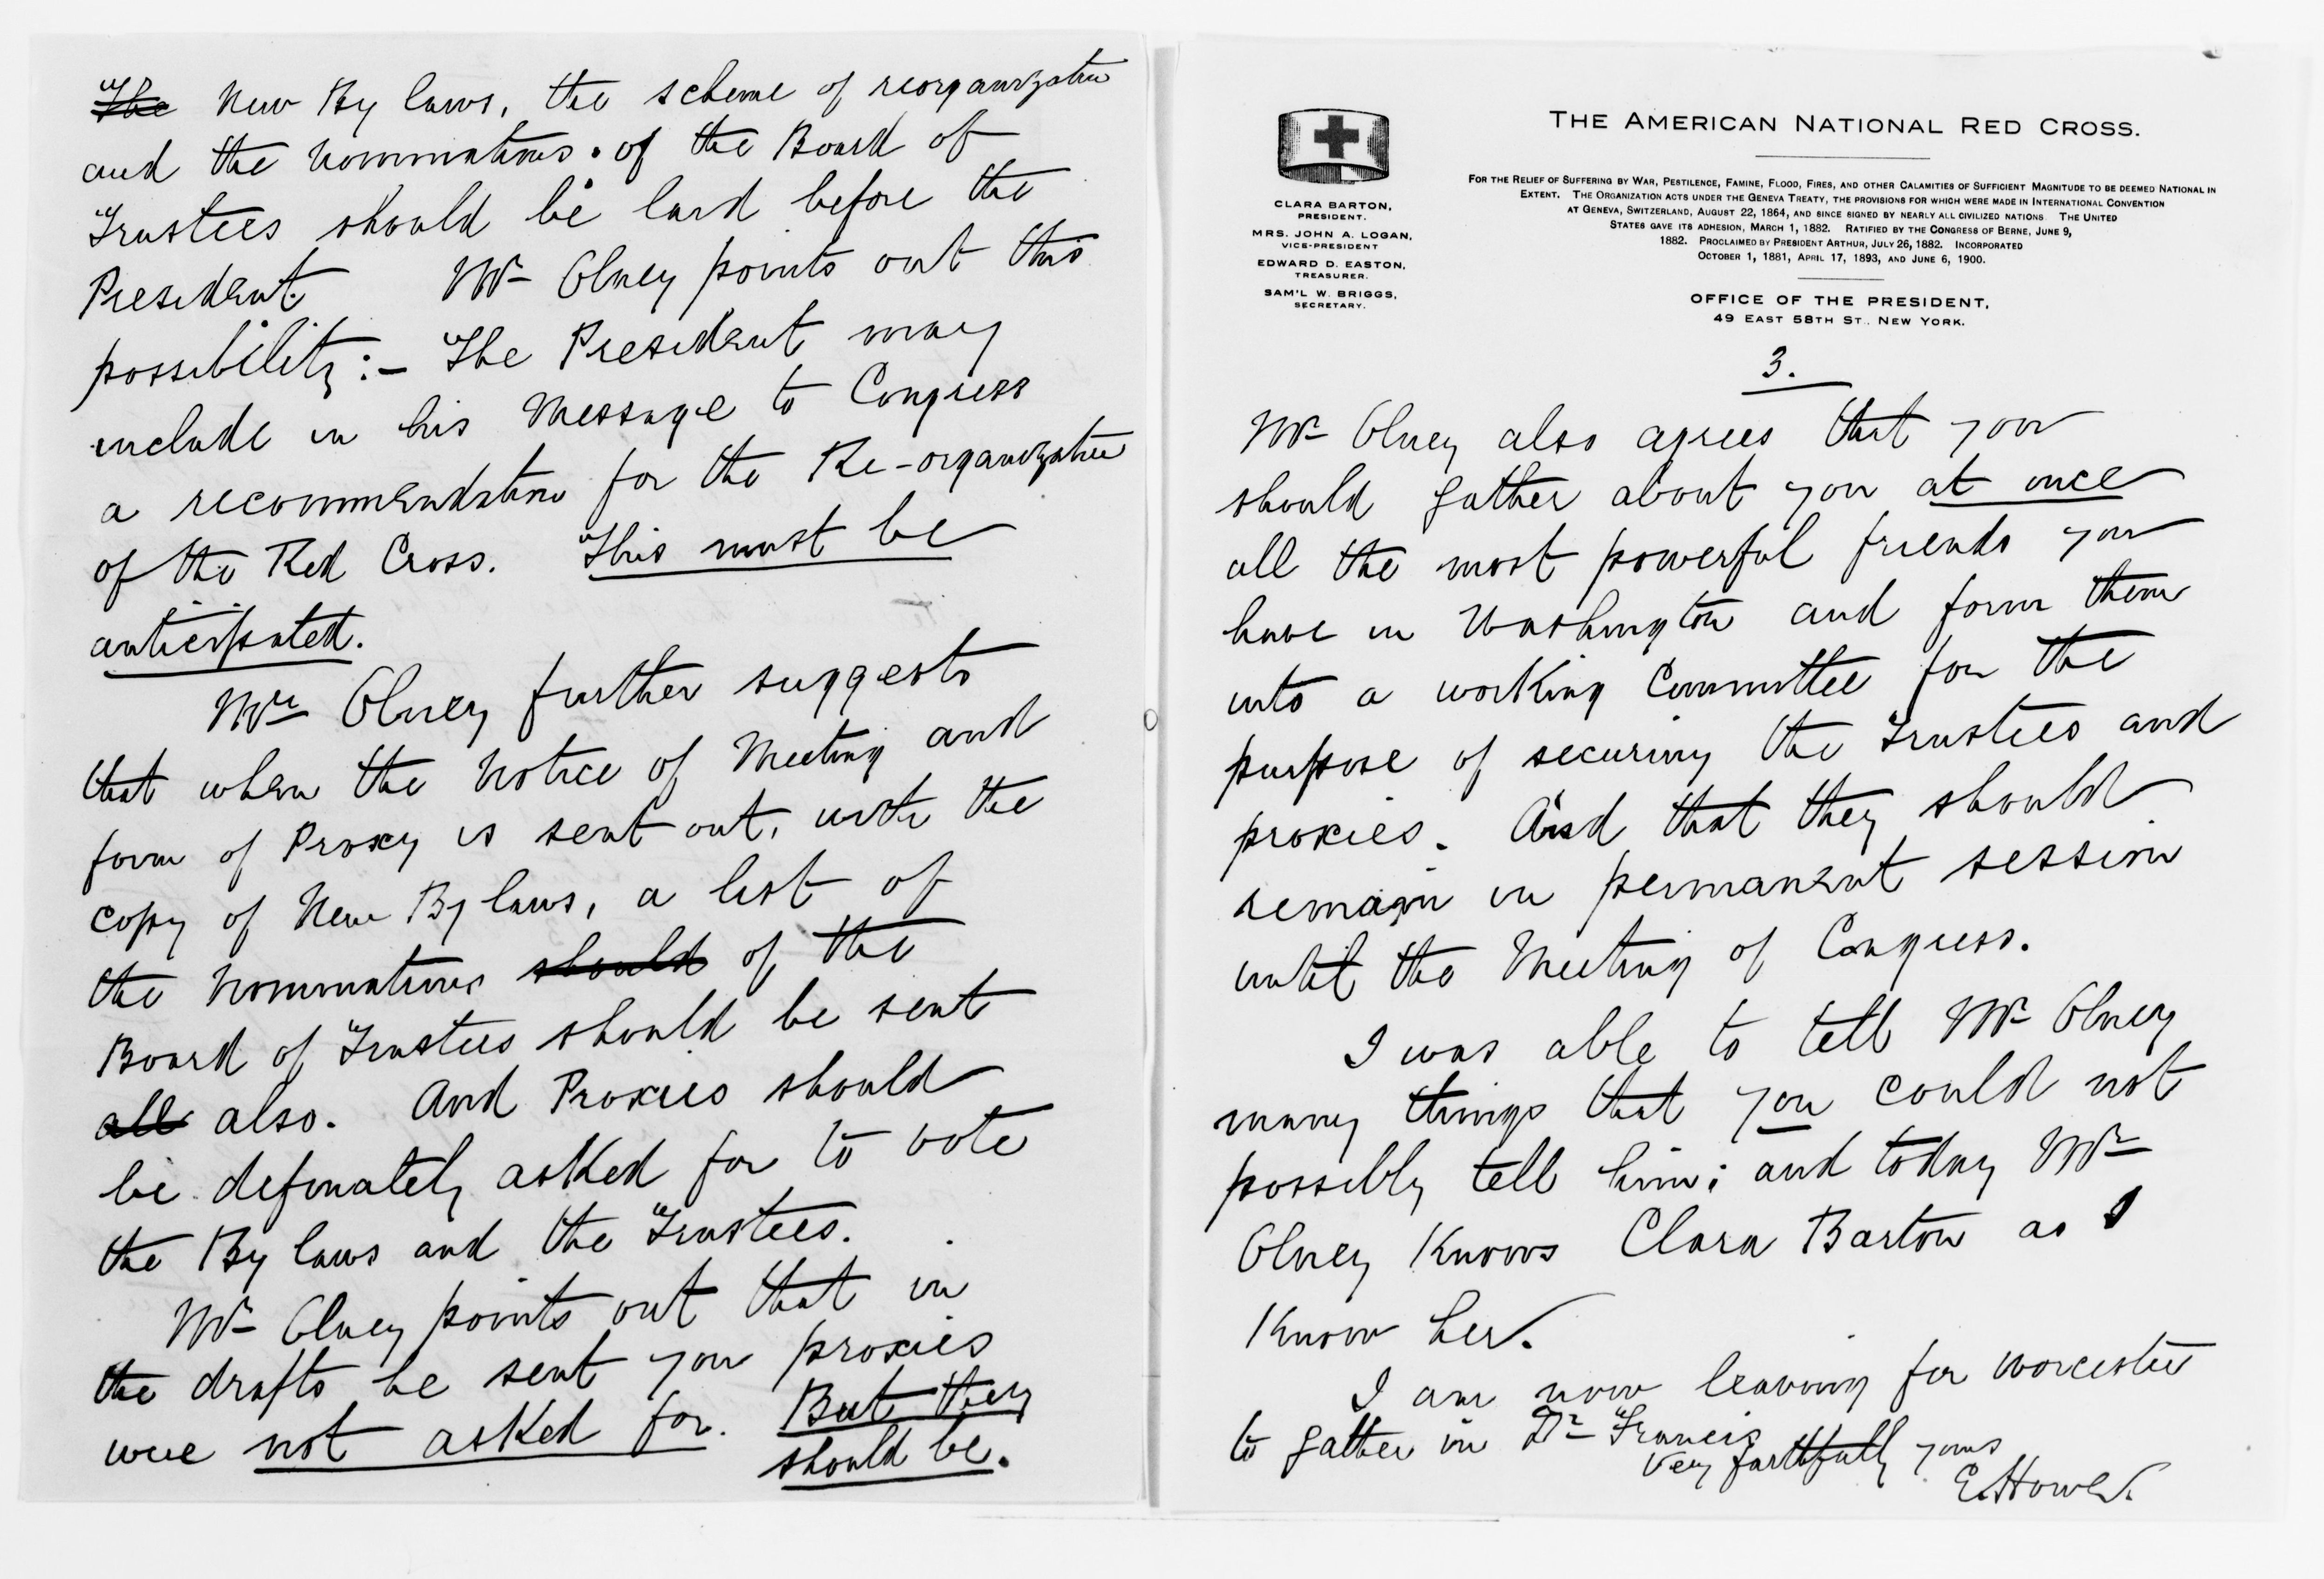 The New By laws, the scheme of reorganization
and the nominations. of the Board of
Trustees should be laid before the
President. Mr Olney points out this
possibility:- The President may
include in his Message to Congress
a recommendation for the Re-organization
of the Red Cross. This must be
anticipated.
Mr Olney further suggests
that when the Notice of Meeting and
form of Proxy is sent out, with the
copy of New By laws, a list of
the nominations should of the
Board of Trustees should be sent
all also. And Proxies should
be definately asked for to vote
the By laws and the Trustees.
Mr Olney points out that in
the drafts he sent you proxies
were not asked for. But they
should be.
THE AMERICAN NATIONAL RED CROSS.
FOR THE RELIEF OF SUFFERING BY WAR, PESTILENCE, FAMINE, FLOOD, FIRES, AND OTHER CALAMITIES OF SUFFICIENT MAGNITUDE TO BE DEEMED NATIONAL IN
EXTENT. THE ORGANIZATION ACTS UNDER THE GENEVA TREATY, THE PROVISIONS FOR WHICH WERE MADE IN INTERNATIONAL CONVENTION
AT GENEVA, SWITZERLAND, AUGUST 22, 1864, AND SINCE SIGNED BY NEARLY ALL CIVILIZED NATIONS. THE UNITED
STATES GAVE ITS ADHESION, MARCH 1, 1882. RATIFIED BY THE CONGRESS OF BERNE, JUNE 9,
1882. PROCLAIMED BY PRESIDENT ARTHUR, JULY 26, 1882. INCORPORATED
OCTOBER 1, 1881, APRIL 17, 1893, AND JUNE 6, 1900.
CLARA BARTON,
PRESIDENT.
MRS. JOHN A. LOGAN,
VICE-PRESIDENT
EDWARD D. EASTON,
TREASURER.
SAM'L W. BRIGGS,
SECRETARY.
OFFICE OF THE PRESIDENT,
49 EAST 58TH ST., NEW YORK.
3.
Mr Olney also agrees that you
should gather about you at once
all the most powerful friends you
have in Washington and form them
into a working Committee for the
purpose of securing the Trustees and
proxies. And that they should
remain in permanent session
until the Meeting of Congress.
I was able to tell Mr Olney
many things that you could not
possibly tell him; and today Mr
Olney Knows Clara Barton as I
Know her.
I am now leaving for Worcester
to gather in Dr Francis
Very faithfully yours
E. Howe.